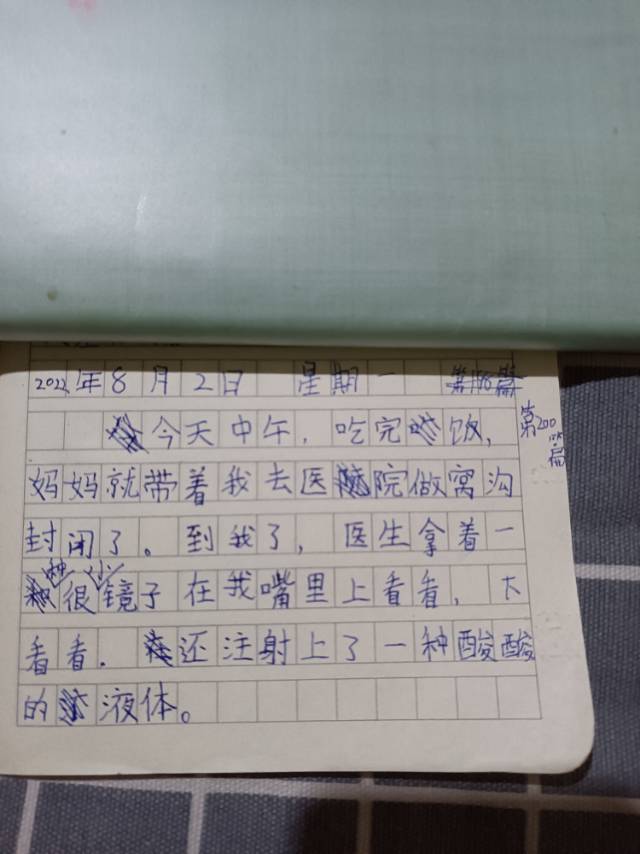 2022年8月2日 星期一
第200篇
今天中午，吃完饭，
妈妈就带着我去医院做窝沟
封闭了。到我了，医生拿着一
种很小镜子在我嘴里上看看，下
看看．还注射上了一种酸酸
的液体。